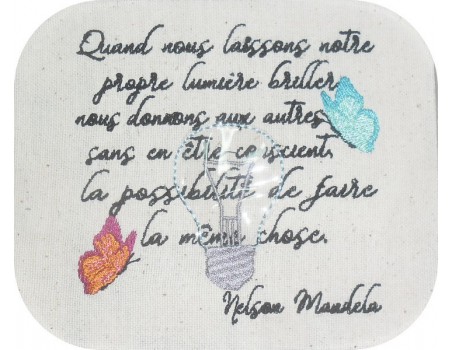 Quand nous laissons notre
propre lumière briller,
nous donnons aux autres,
sans en être conscient,
la possibilité de faire
la même chose.
Nelson Mandela